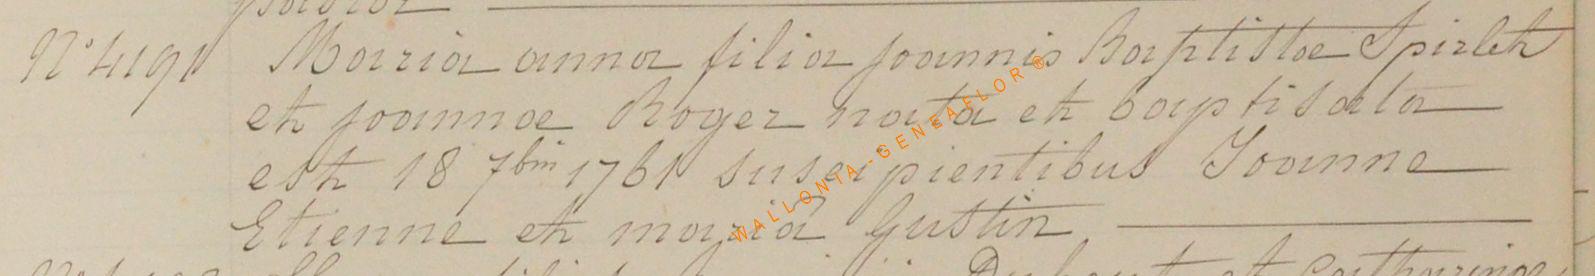 N° 4191 Maria anna filia joannis Baptistae Spirlet
et joannae Roger nata et baptisata
est 18 7bris 1761 suscipientibus Joanne
Etienne et maria Gustin
WALLONIA-GENEAFLOR®